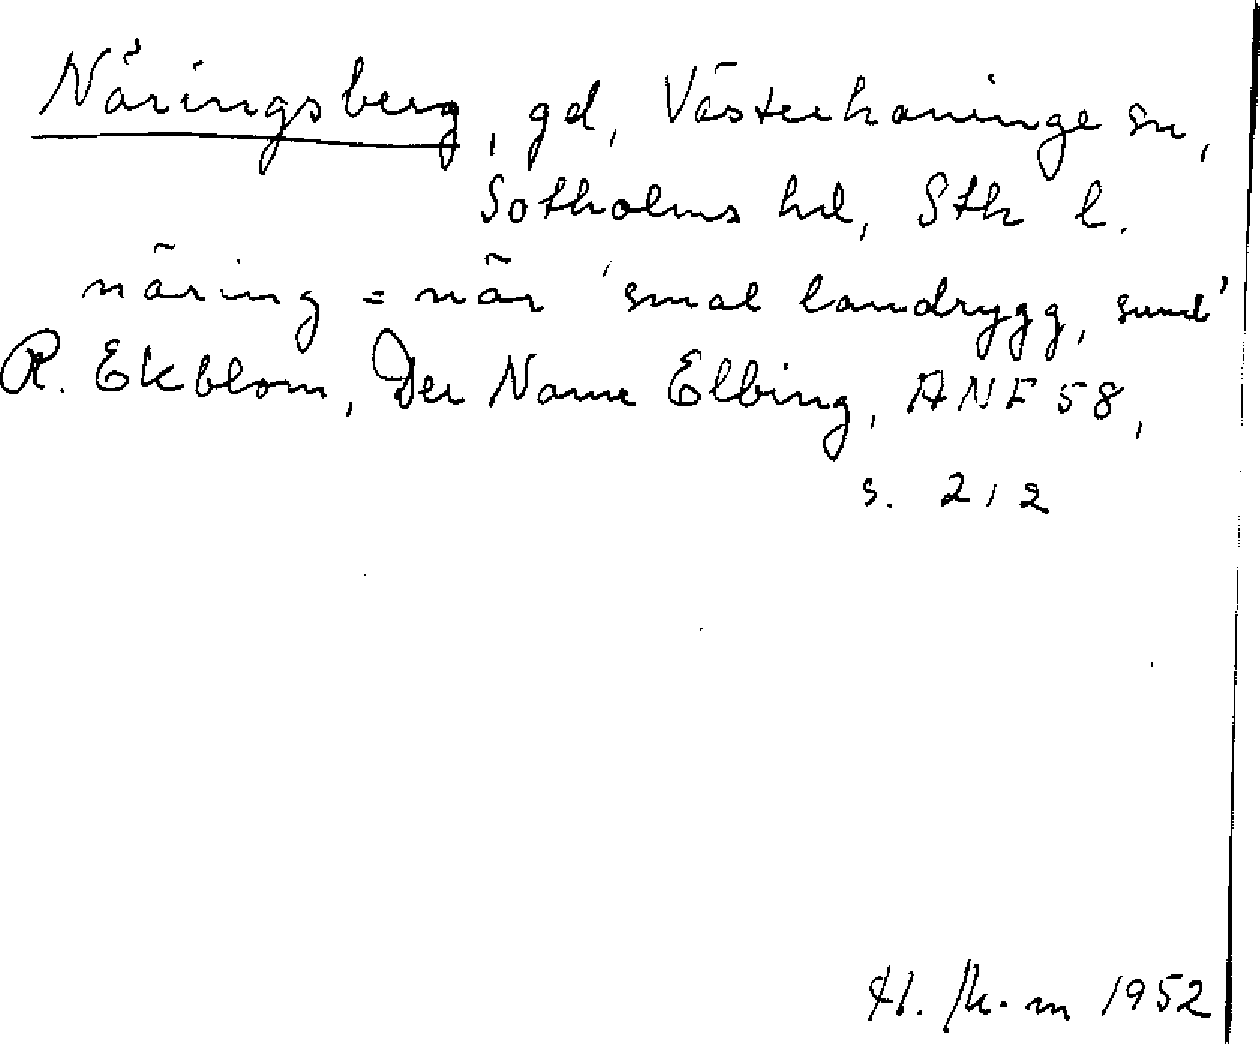 Näringsberg, gd, Västerhaninge sn,
Sotholms hd, Sth l.
näring = när 'smal landrygg, sund'
R. Ekblom, Der Name Elbing, ANF 58,
s. 212
1952